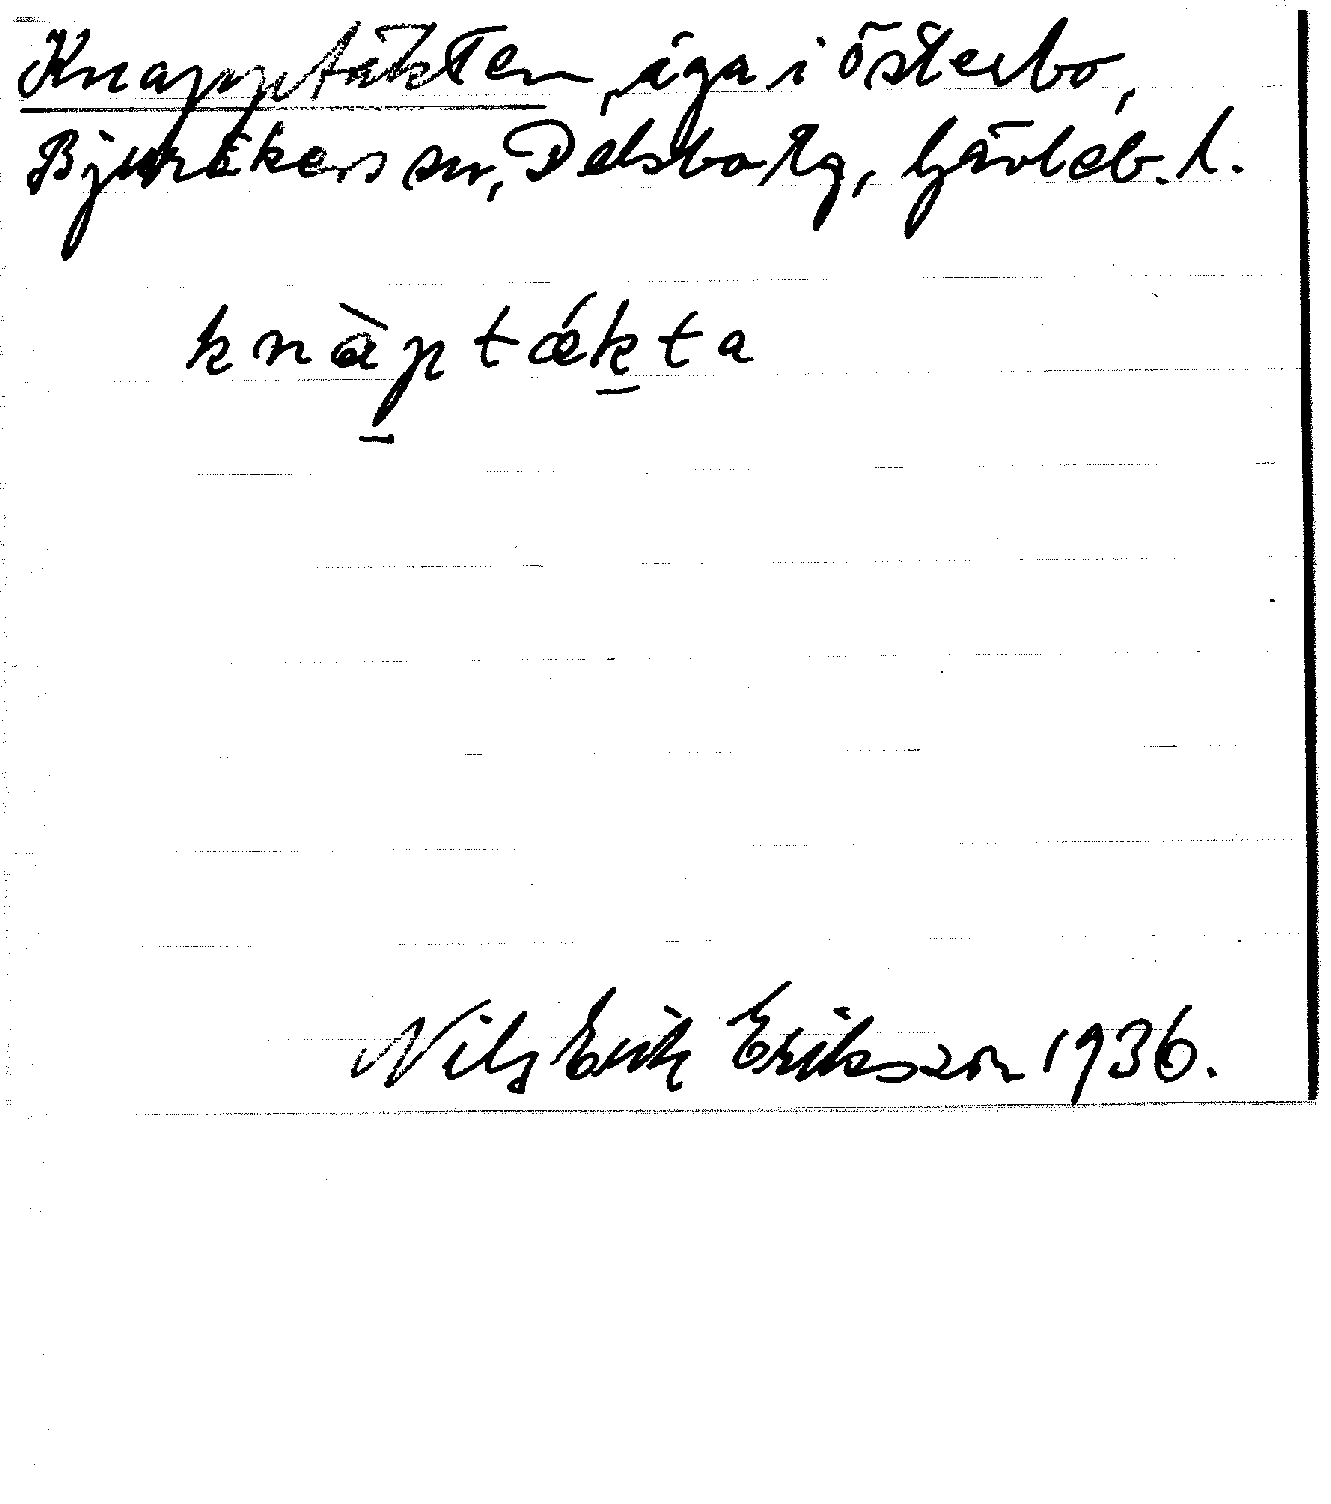 Knapptäkten, äga i Österbo,
Bjuråkers sn, Delsbo tg, Gävleb. l.
knàptǽkta
Nils Erik Eriksson 1936.